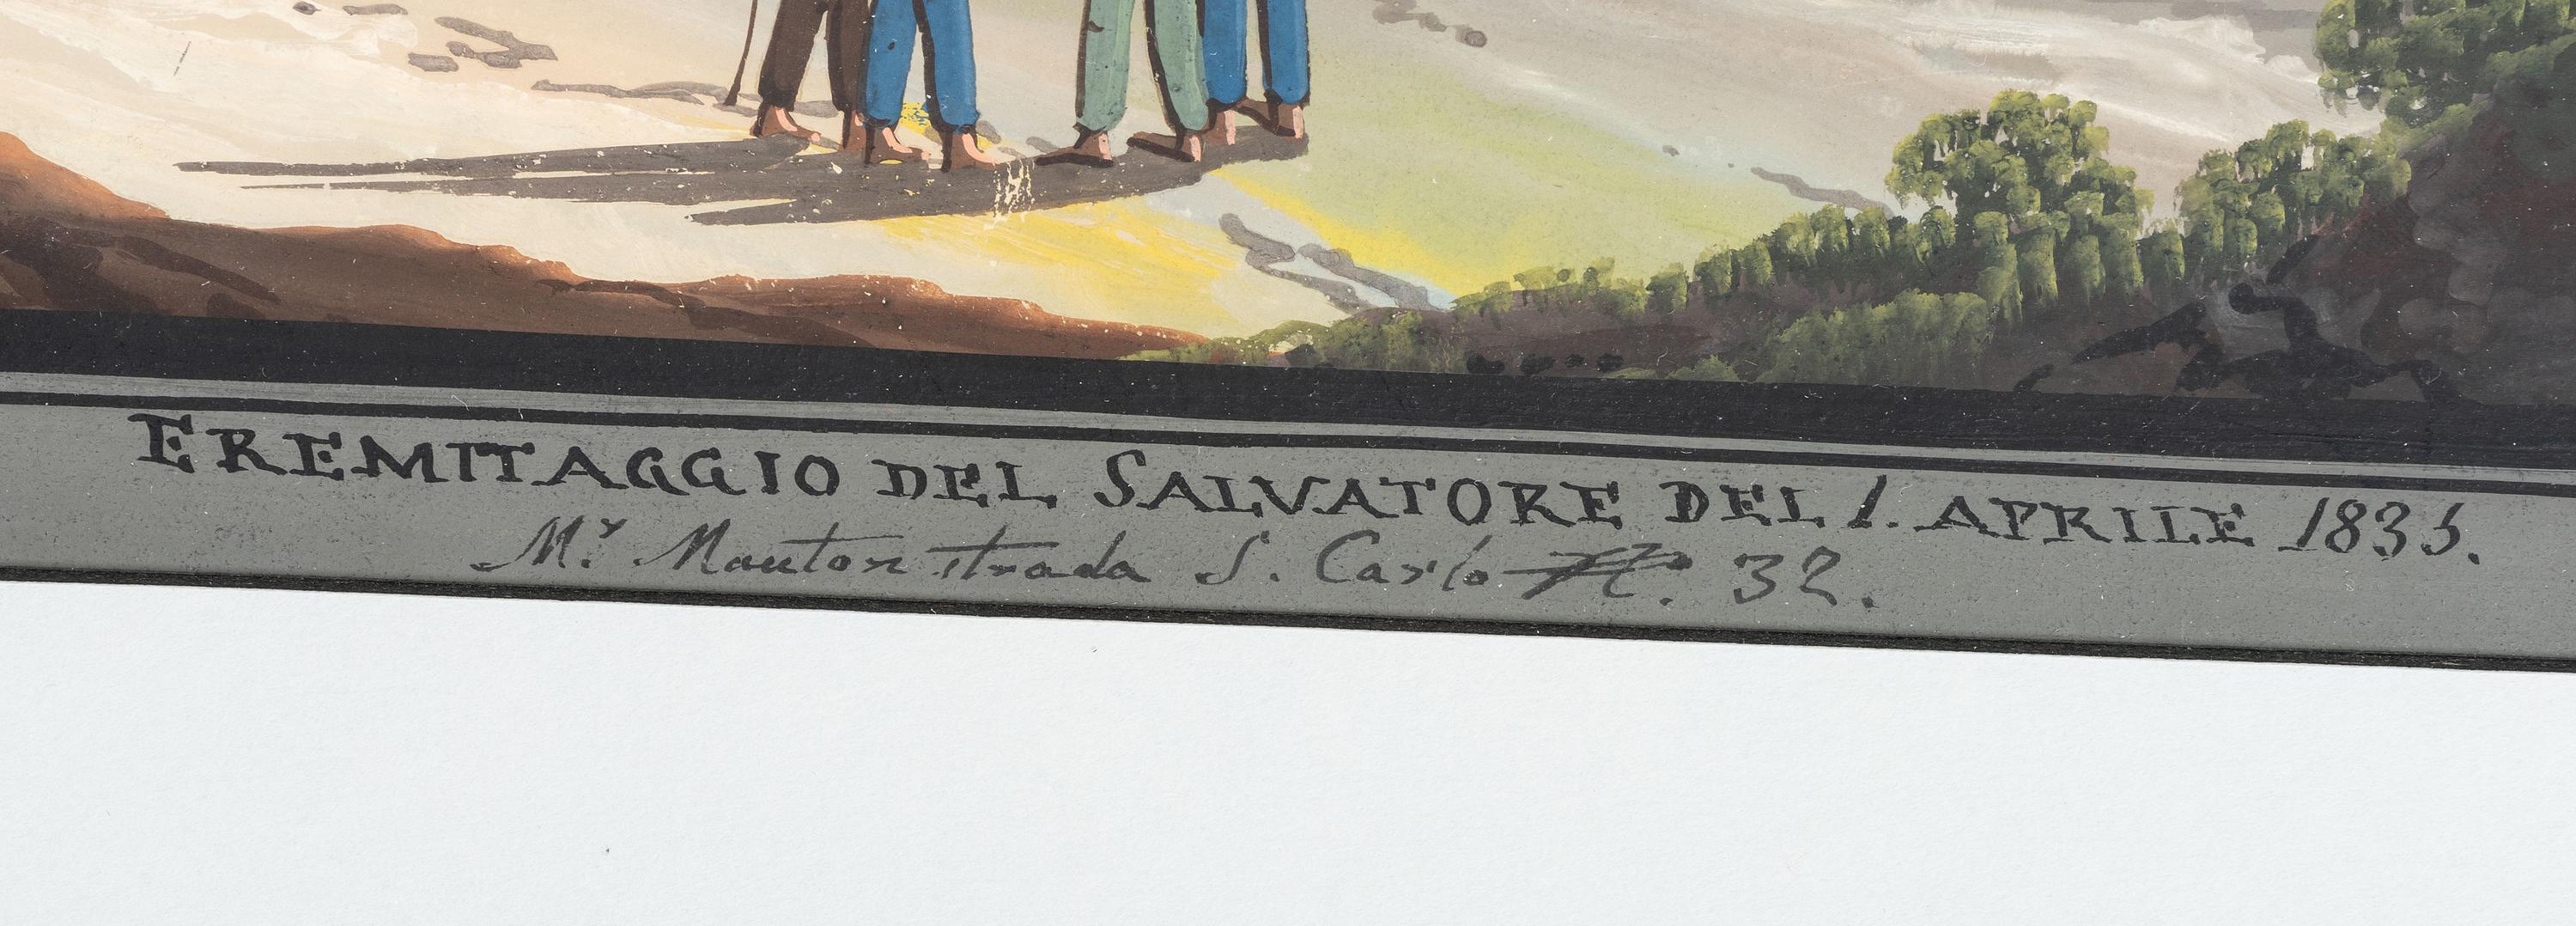 EREMITAGGIO DEL SALVATORE DEL 1. APRILE 1835.
M.r Mauton strada S. Carlo N. 32.